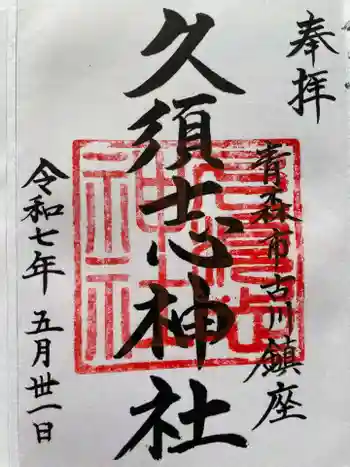 奉拝
青森市古川鎮座
久須志神社
令和七年 五月卅一日